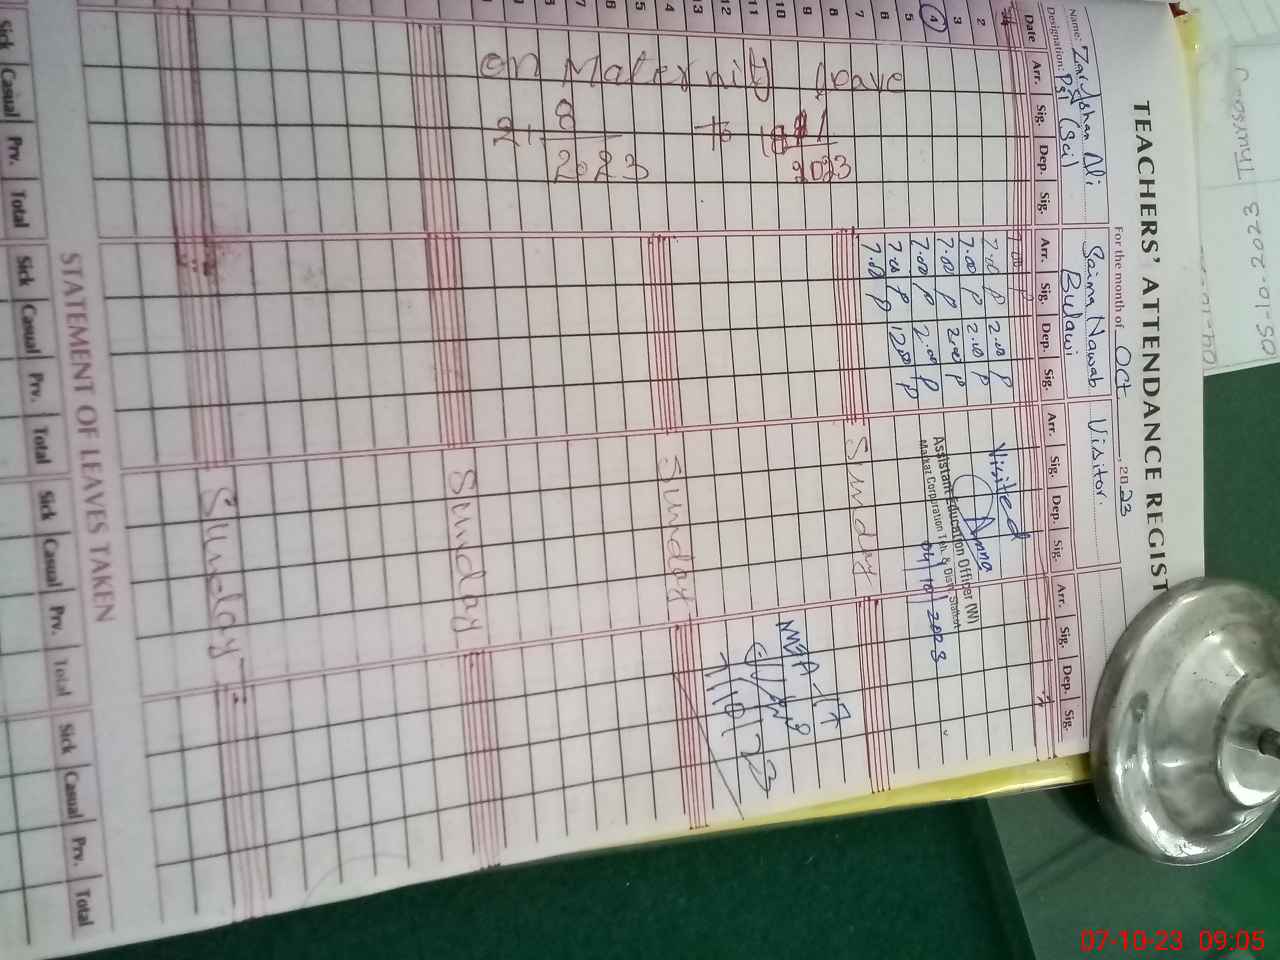 TEACHERS' ATTENDANCE REGIST
For the month of Oct, 2023
Name: Zaryshan Ali
Designation: Pst (Sci)
Saima Nawab
Bulawi
Visitor.
Date Arr. Sig. Dep. Sig. Arr. Sig. Dep. Sig. Arr. Sig. Dep. Sig. Arr. Sig. Dep. Sig.
7.00 P
2 7.00 P 2.00 P
3 7.00 P 2.00 P
4 7.00 P 2.00 P
5 7.00 P 2.00 P
6 7.00 P 12.00 P
7 7.00 P
8
9
10
11
12
13
Visited
Amna
Assistant Education Officer (W)
Markaz Corporation Teh. & Distt. Sialkot
04/10/2023
on Maternity leave
to
2023
2023
Sunday
Sunday
Sunday
Sunday
7/10/23
STATEMENT OF LEAVES TAKEN
Sick Casual Prv. Total Sick Casual Prv. Total Sick Casual Prv. Total Sick Casual Prv. Total
05-10-2023
Thursday
07-10-23 09:05